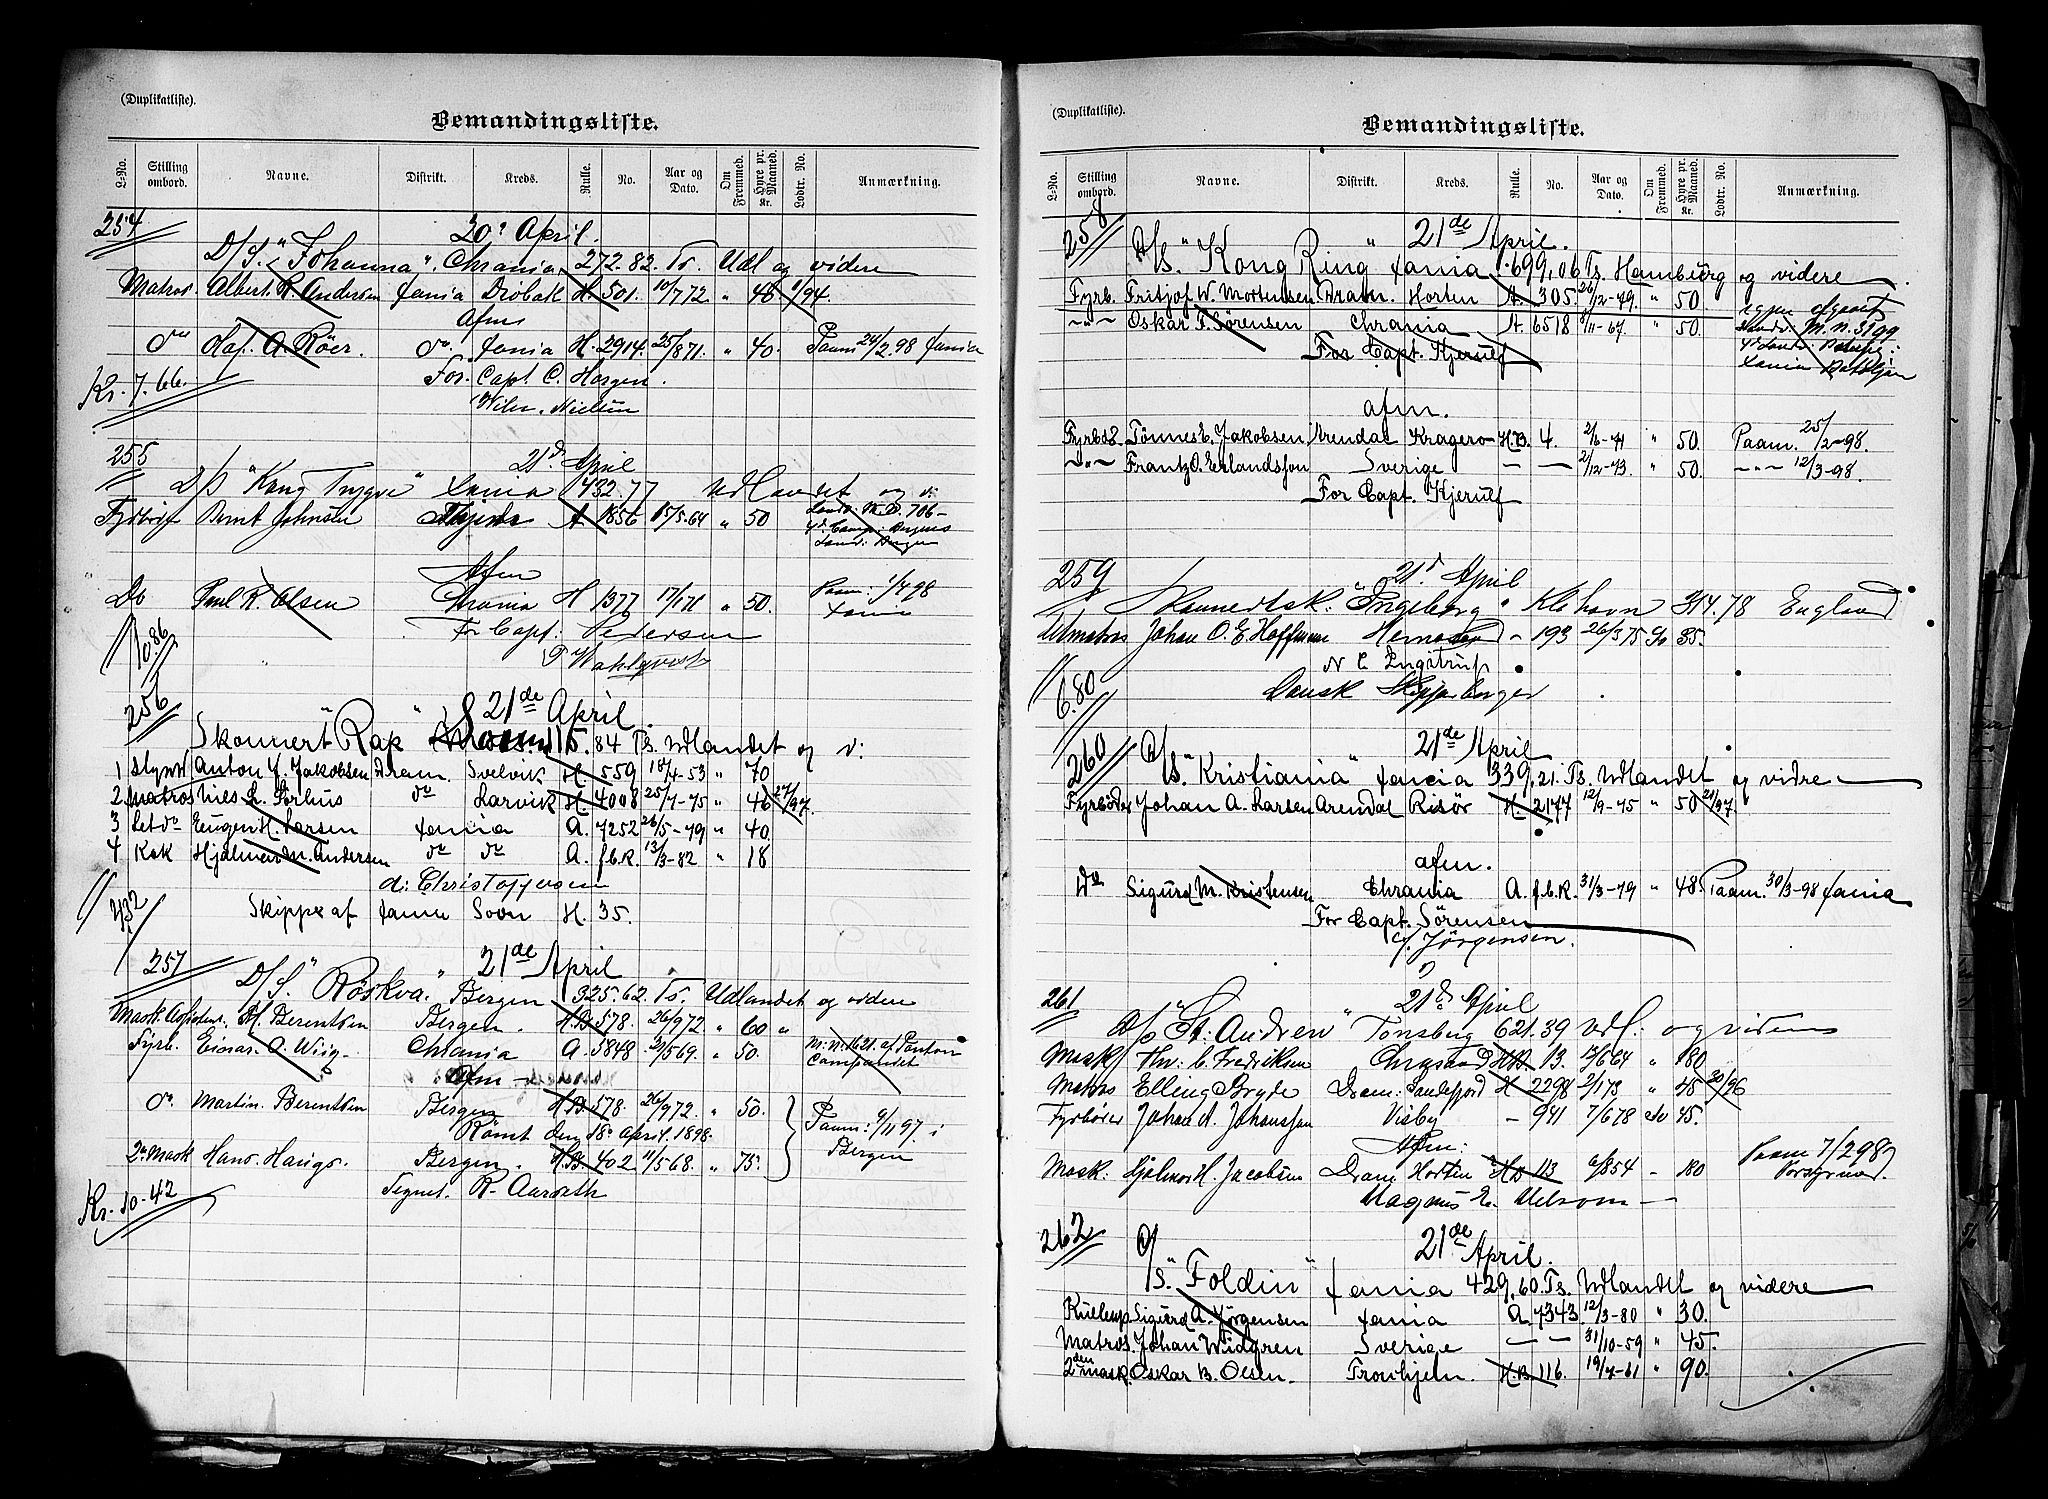 (Duplikatliste).
Bemandingsliste.
L-No. Stilling ombord. Navne. Distrikt. Kreds. Rulle. No. Aar og Dato. Om Fremmed. Hyre pr. Maaned. Kr. Lodtr. No. Anmærkning.
254 20de April.
D/S. "Johanna". Chrania. 272.82. Ts. Udl og videre
Matros Albert R. Andersen Xania Dröbak H. 501. 10/7 72. " 48 /94.
Afm
do A. Röer. do. Xania H. 2914. 25/8 71. " 40. Paam 24/2.98 Xania
Kr. 7.66. For. Capt C. Horgen.
Nielsen
255 21de April
D/S "Kong Trygve" Xania 432.77 Udlandet og v:
Fyrböd Johnsen A. 1856 15/5.64 " 50 706-
Afm
Do Paul R. Olsen Chrania H 1377 17/1 71 " 50. Paam: 1/4 98 Xania
10.86 For Capt: Pedersen
P Wahlqvist
256 21de April.
Skonnert "Rap" 115.84 Ts. Udlandet og v:
1 Styrm Anton J. Jakobsen Dram. Svelvik H. 559 18/4-53 " 70
2 Matros Nils L. Sörhus do Larvik H. 4008 25/7-75 " 46 27/97.
3 Let do Eugen H. Larsen Xania A. 7252 26/5-79 " 40.
4 Kok Hjalmar M. Andersen do do A. f.b.R. 13/3-82 " 18
d: Christoffersen
4.32 Skipper af Xania Sovn H. 35.
257 21de April
D/S. "Röskva." Bergen 325.62. Ts. Udlandet og videre
Mask. Assistent. M. Berentsen Bergen. H.B. 578. 26/9 72 " 60 "
Fyrb. Einar. O. Wiig. Chrania A. 5848 2/5 69. " 50. M.N. 1621. af
Afm
do. Martin. Berentsen Bergen H.B. 578. 26/9 72. " 50. Paam: 9/11 97. i
Römt den 18de April. 1898. Bergen
2n. Mask Hans. Haugs. Bergen. H.B. 402 11/5 68. " 75.
Kr. 10-42 Tegnet. R. Aarseth
(Duplikatliste).
Bemandingsliste.
L-No. Stilling ombord. Navne. Distrikt. Kreds. Rulle. No. Aar og Dato. Om Fremmed. Hyre pr. Maaned. Kr. Lodtr. No. Anmærkning.
258 21de April.
D/S. "Kong Ring" Xania 699,06 Ts. Hamburg og videre.
Fyrb. Fritjof W. Mortensen Dram. Horten A. 305. 26/12-79. " 50.
-"- Oskar F. Sörensen Chrania A. 6518 8/11-67. " 50. M.N. 3199
For Capt. Kjerulf
afm.
Fyrböd. Tönnes E. Jakobsen Arendal Kragerö H.B. 4. 2/6-71 " 50. Paam. 25/2-98.
-"- Frantz O. Erlandsson Sverige - - 2/12-73. " 50. -"- 12/3-98.
For Capt. Kjerulf
259 21de April
Skonnertsk: "Ingeborg" Kbhavn 314.78 England
Johan O. E. Hoffmann Hernosand - 193 26/3 75 Ja 35.
N C Engstrup
6.80 Dansk Skipperborger
260 21de April
D/S. "Kristiania" Xania 339,21. Ts. Udlandet og vidre
Fyrböder Johan A. Larsen Arendal Risör H. 2177 12/9-75 " 50 21/97.
afm.
do Sigurd M. Kristensen Chrania A. f.b.R. 31/3-79 " 48. Paam. 30/3-98 Xania
For Capt. Sörensen
e/ Jörgensen.
261 21de April
D/S "St: Andren" Tönsberg 621.39 Udl: og videre
Mask C. Fredriksen H.B. 13. 12/6 64 " 180
Matros Elling Bryde Dram: Sandefjord H 2298 2/1 73 " 45 30/96
Fyrböder Johan A. Johansson Visby - 941 7/6 78 Ja 45.
Afm:
Mask. Hjalmar H. Jacobsen Dram Horten H.B 113 6/8 54 - 180 Paam 7/2 98
Magnus E. Melsom
262 21de April.
D/S. "Foldin" Xania 429,60. Ts. Udlandet og videre
Kullemp. Sigurd A. Jörgensen Xania A. 7343. 12/3-80 " 30.
Matros. Johan Widgren Sverige - - 31/10-59 " 45.
2den mask. Oskar B. Olsen. Tronhjem. H.B. 116. 19/7-61 " 90.